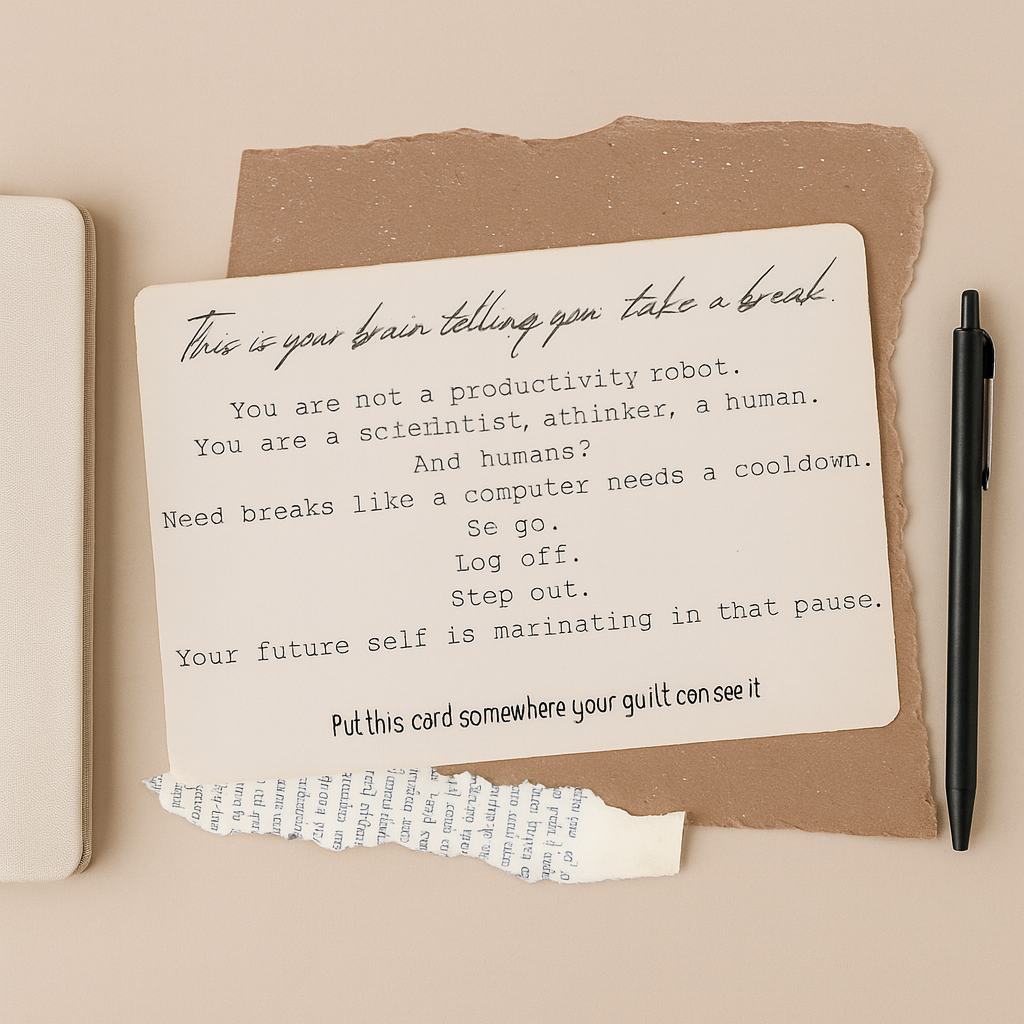 This is your brain telling you: take a break.
You are not a productivity robot.
You are a scierlntist, athinker, a human.
And humans?
Need breaks like a computer needs a cooldown.
Se go.
Log off.
Step out.
Your future self is marinating in that pause.
Put this card somewhere your guilt can see it